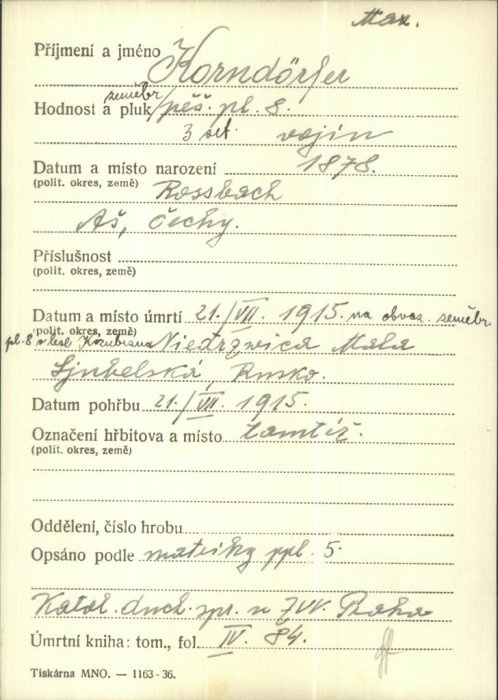 Max.
Příjmení a jméno Korndörfer
zeměbr.
Hodnost a pluk pěš. pl. 8.
3 set. vojín
Datum a místo narození 1878.
(polit. okres, země) Rossbach
Aš, Čechy.
Příslušnost
(polit. okres, země)
Datum a místo úmrtí 21./VII. 1915. na obvaz. zeměbr.
(polit. okres, země)
pl. 8 v lese Niedrzwica Mala
Ljubelská, Rusko.
Datum pohřbu 21./VII. 1915.
Označení hřbitova a místo tamtéž.
(polit. okres, země)
Oddělení, číslo hrobu
Opsáno podle matriky ppl. 5.
Katol. duch. spr. u ZVV. Praha
Úmrtní kniha: tom., fol. IV. 84.
Tiskárna MNO. — 1163-36.